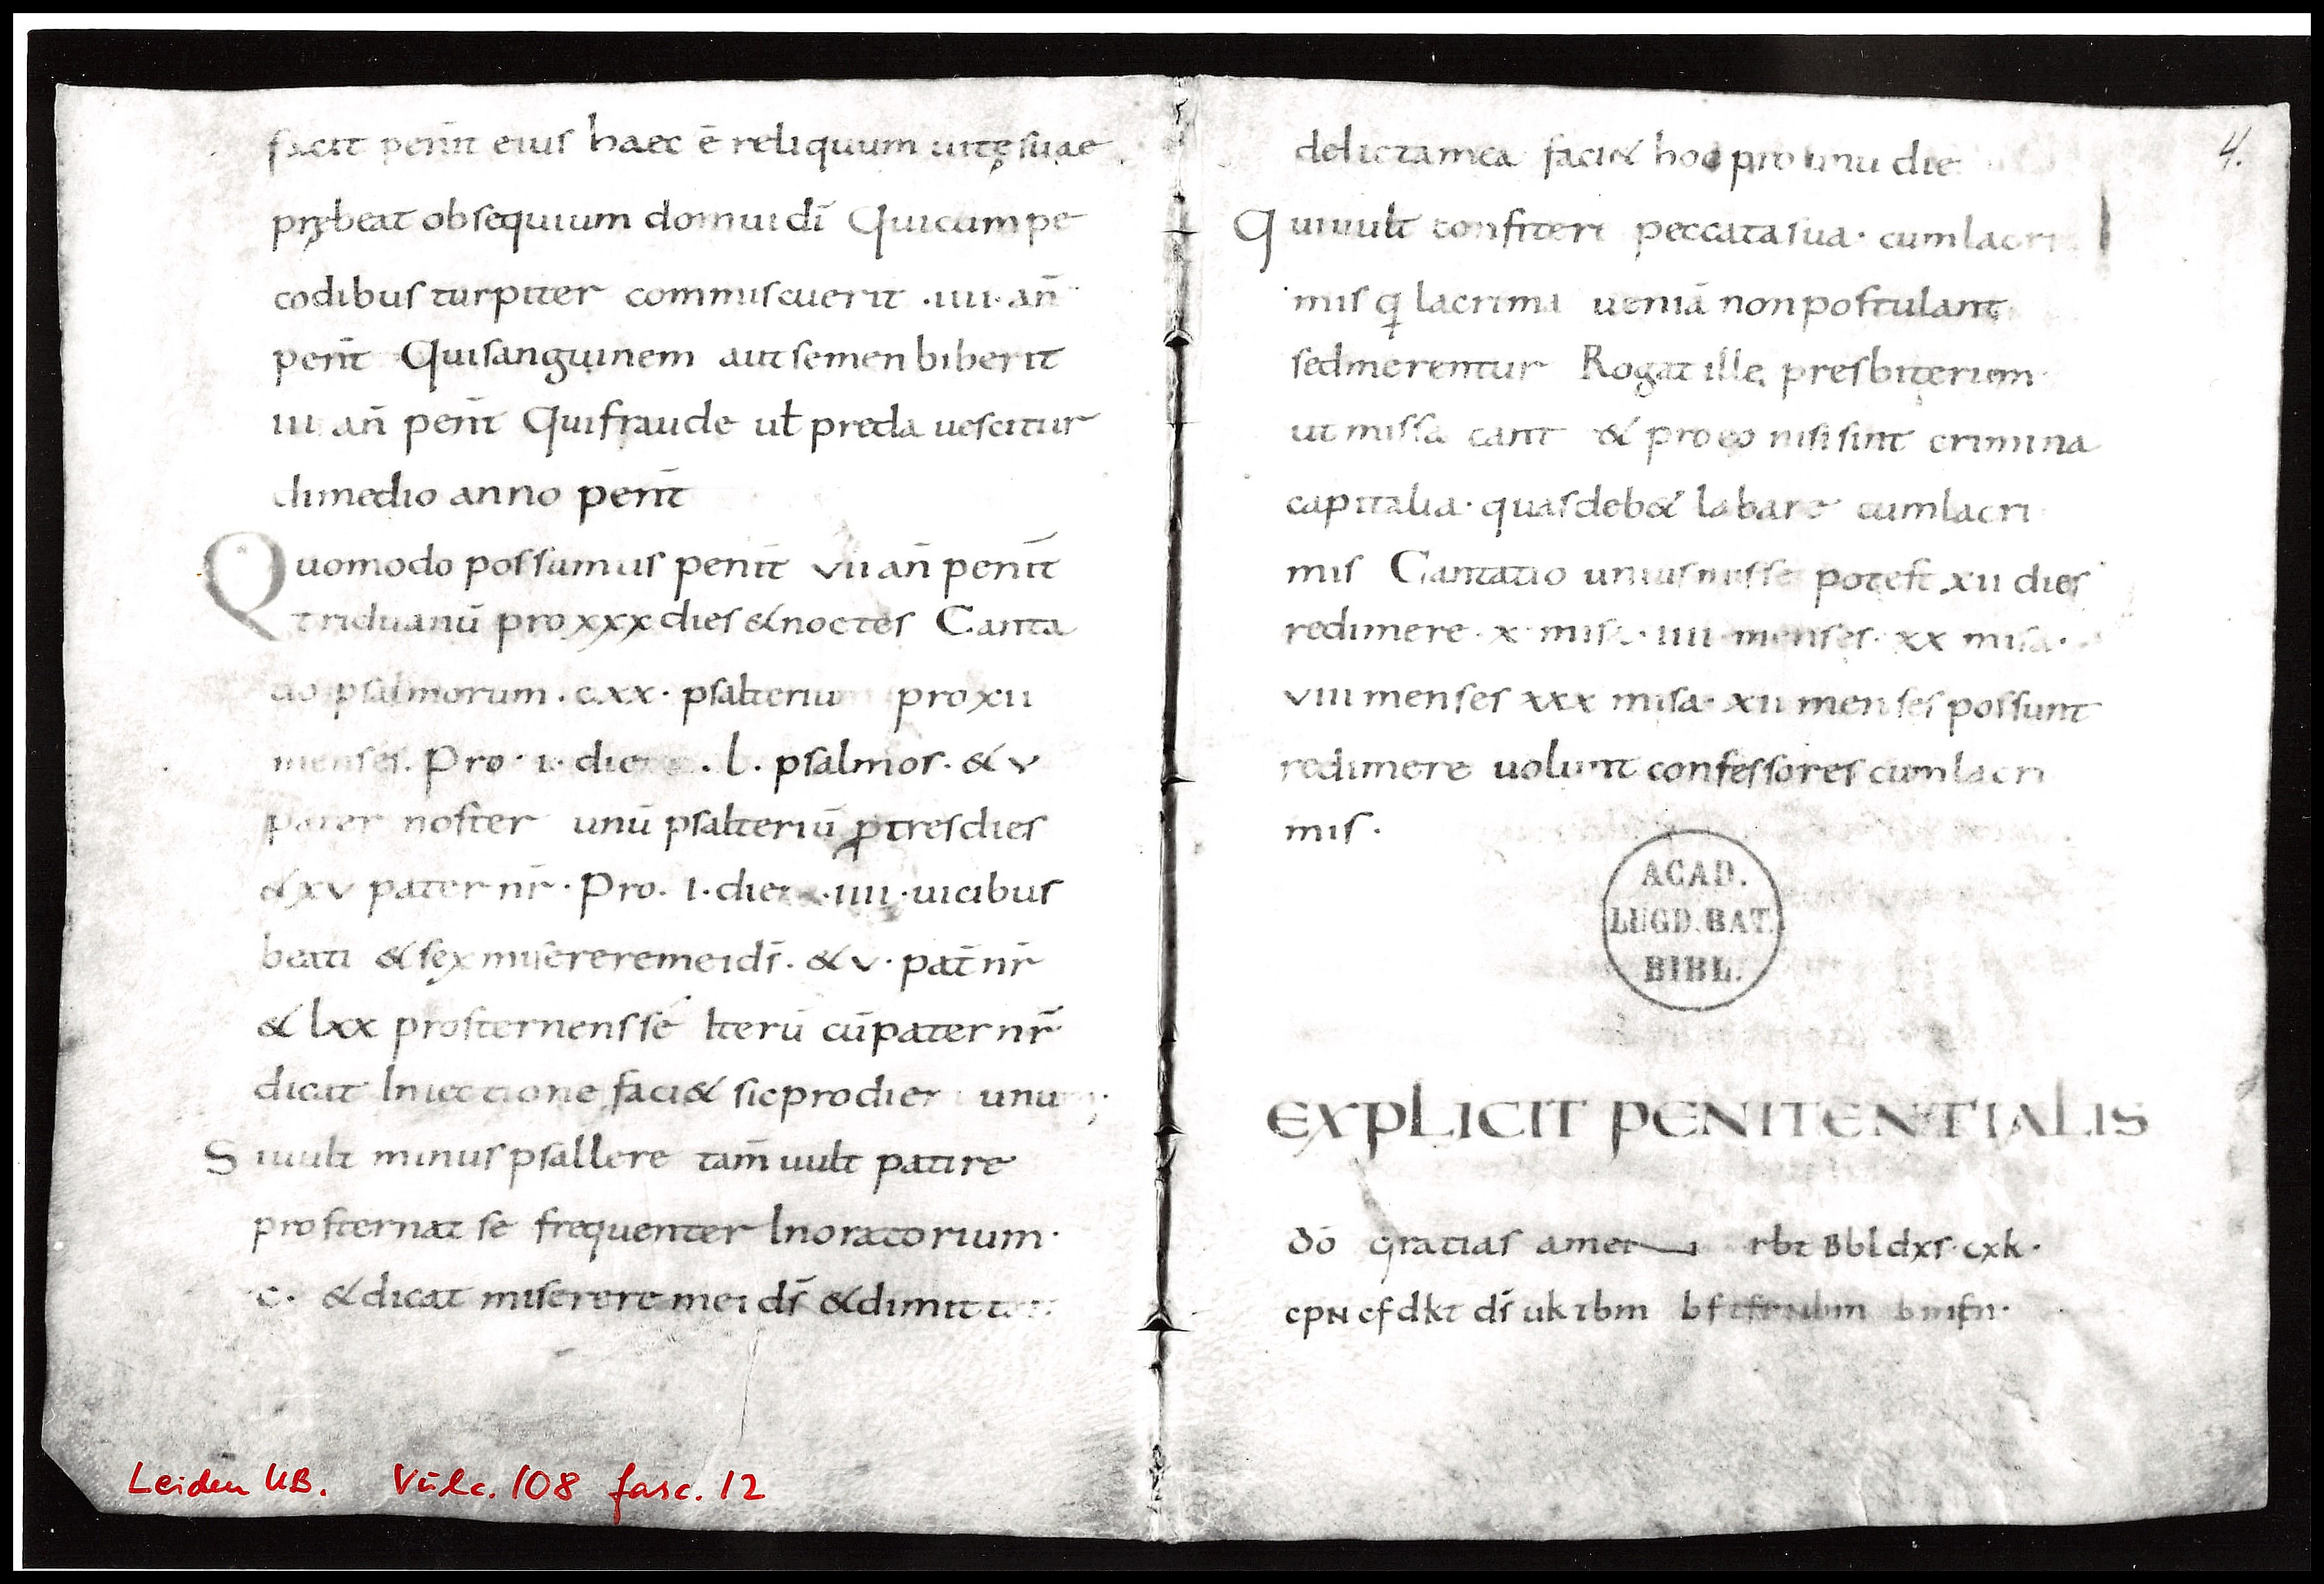 facit penīt eius haec ē reliquum uitę suae
prębeat obsequium domui dī Qui cum pe
codibus turpiter commiscuerit ·iiii· añ
penīt Qui sanguinem aut semen biberit
iii añ penīt Qui fraude ul̄ preda uescitur
dimedio anno penīt
Quomodo possumus penīt vii añ penīt
triduanū pro xxx dies & noctes Canta
tio psalmorum · c.xx · psalteriu pro xii
menses. Pro · i · die · l · psalmos · & v
pater noster unū psalteriū ꝓ tres dies
& xv pater nr̄ · Pro · I · die · iiii · uicibus
beati & sex miserere mei dš · & v · pat̄ nr̄
& lxx prosternens sé Iterū cū pater nr̄
dicit Iniectione faci& sic pro dier unu
Si uult minus psallere tam̄ uult patire
prosternat se frequenter In oratorium ·
c · & dicat miserere mei dš & dimitte
4.
delicta mea faci& hoc pro unu die
Qui uult confiteri peccata sua · cum lacri
mis q lacrima ueniā non postulant
sed merentur Rogat ille presbiterum
ut missa cant & pro eo nisi sint crimina
capitalia · quas deb& labare cum lacri
mis Cantatio unius misse potest xii dies
redimere · x · mis · iiii menses · xx misa ·
viii menses xxx misa · xii menses possunt
redimere uolunt confessores cum lacri
mis ·
ACAD.
LUGD. BAT.
BIBL.
EXPLICIT PENITENTIALIS
dō gratias amen rbt Bbldxs · cxk ·
cpN cfdkt dš uktbm
Leiden UB. Vulc. 108 fasc. 12